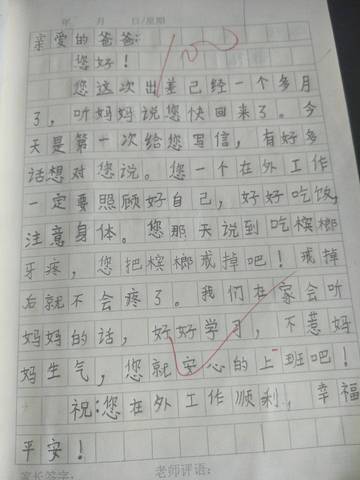 年 月 日/星期
亲爱的爸爸:
您好!
您这次出差已经一个多月
了,听妈妈说您快回来了。今
天是第一次给您写信,有好多
话想对您说。您一个在外工作
一定要照顾好自己,好好吃饭,
注意身体。您那天说到吃槟榔
牙疼,您把槟榔戒掉吧!戒掉
后就不会疼了。我们在家会听
妈妈的话,好好学习,不惹妈
妈生气,您就安心的上班吧!
祝:您在外工作顺利,幸福
平安!
家长签字: 老师评语: